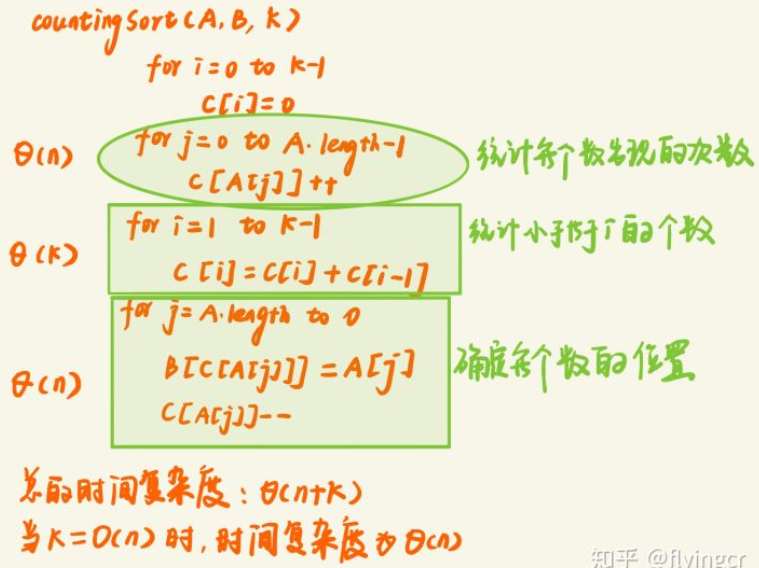 countingSort(A, B, K)
for i=0 to K-1
C[i]=0
θ(n)
for j=0 to A.length-1
C[A[j]]++
统计每个数出现的次数
θ(K)
for i=1 to K-1
C[i]=C[i]+C[i-1]
统计小于等于i的个数
θ(n)
for j=A.length to 0
B[C[A[j]]]=A[j]
C[A[j]]--
确定每个数的位置
总的时间复杂度:θ(n+K)
当K=O(n)时,时间复杂度为θ(n)
知乎 @flyingcr